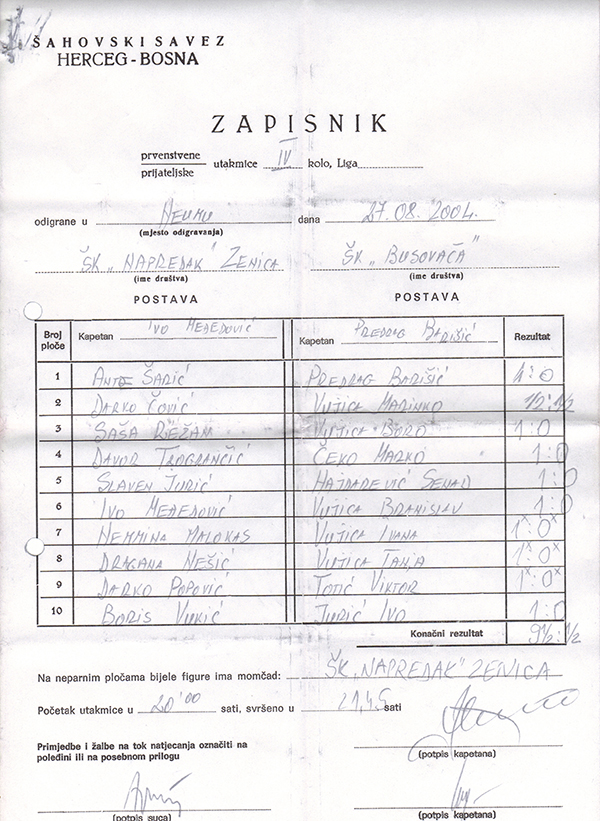 ŠAHOVSKI SAVEZ
HERCEG-BOSNA
ZAPISNIK
prvenstvene
prijateljske
utakmice IV kolo, Liga
odigrane u Neumu dana 27.08.2004.
(mjesto odigravanja)
ŠK „NAPREDAK" ZENICA ŠK „BUSOVAČA"
(ime društva) (ime društva)
POSTAVA POSTAVA
Broj ploče Kapetan IVO MEĐEDOVIĆ Kapetan PREDRAG BARIŠIĆ Rezultat
1 ANTE ŠARIĆ PREDRAG BARIŠIĆ 1:0
2 DARKO ČOVIĆ VUJICA MARINKO 1/2:1/2
3 SAŠA REŽAN VUJICA BORO 1:0
4 DAVOR TROGRANČIĆ ČEKO MARKO 1:0
5 SLAVEN JURIĆ HAJDAREVIĆ SENAD 1:0
6 IVO MEĐEDOVIĆ VUJICA BRANISLAV 1:0
7 NERMINA MALOKAS VUJICA IVANA 1x:0x
8 DRAGANA NEŠIĆ VUJICA TANJA 1x:0x
9 DARKO POPOVIĆ TOTIĆ VIKTOR 1x:0x
10 BORIS VUKIĆ JURIĆ IVO 1:0
Konačni rezultat 9 1/2:1/2
Na neparnim pločama bijele figure ima momčad: ŠK „NAPREDAK" ZENICA
Početak utakmice u 20'00 sati, svršeno u 21,45 sati
Primjedbe i žalbe na tok natjecanja označiti na
poleđini ili na posebnom prilogu
(potpis kapetana)
(potpis suca) (potpis kapetana)